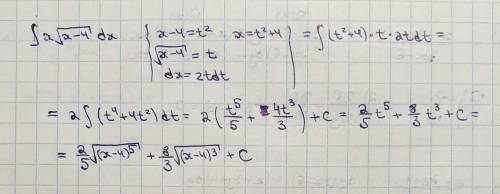 ∫ x√(x-4) dx { x-4=t² x=t²+4 } = ∫(t²+4)·t·2tdt=
√(x-4) = t
dx=2tdt
= 2∫(t⁴+4t²)dt = 2(t⁵/5 + 4t³/3) + C = 2/5 t⁵ + 8/3 t³ + C =
= 2/5 √((x-4)⁵) + 8/3 √((x-4)³) + C